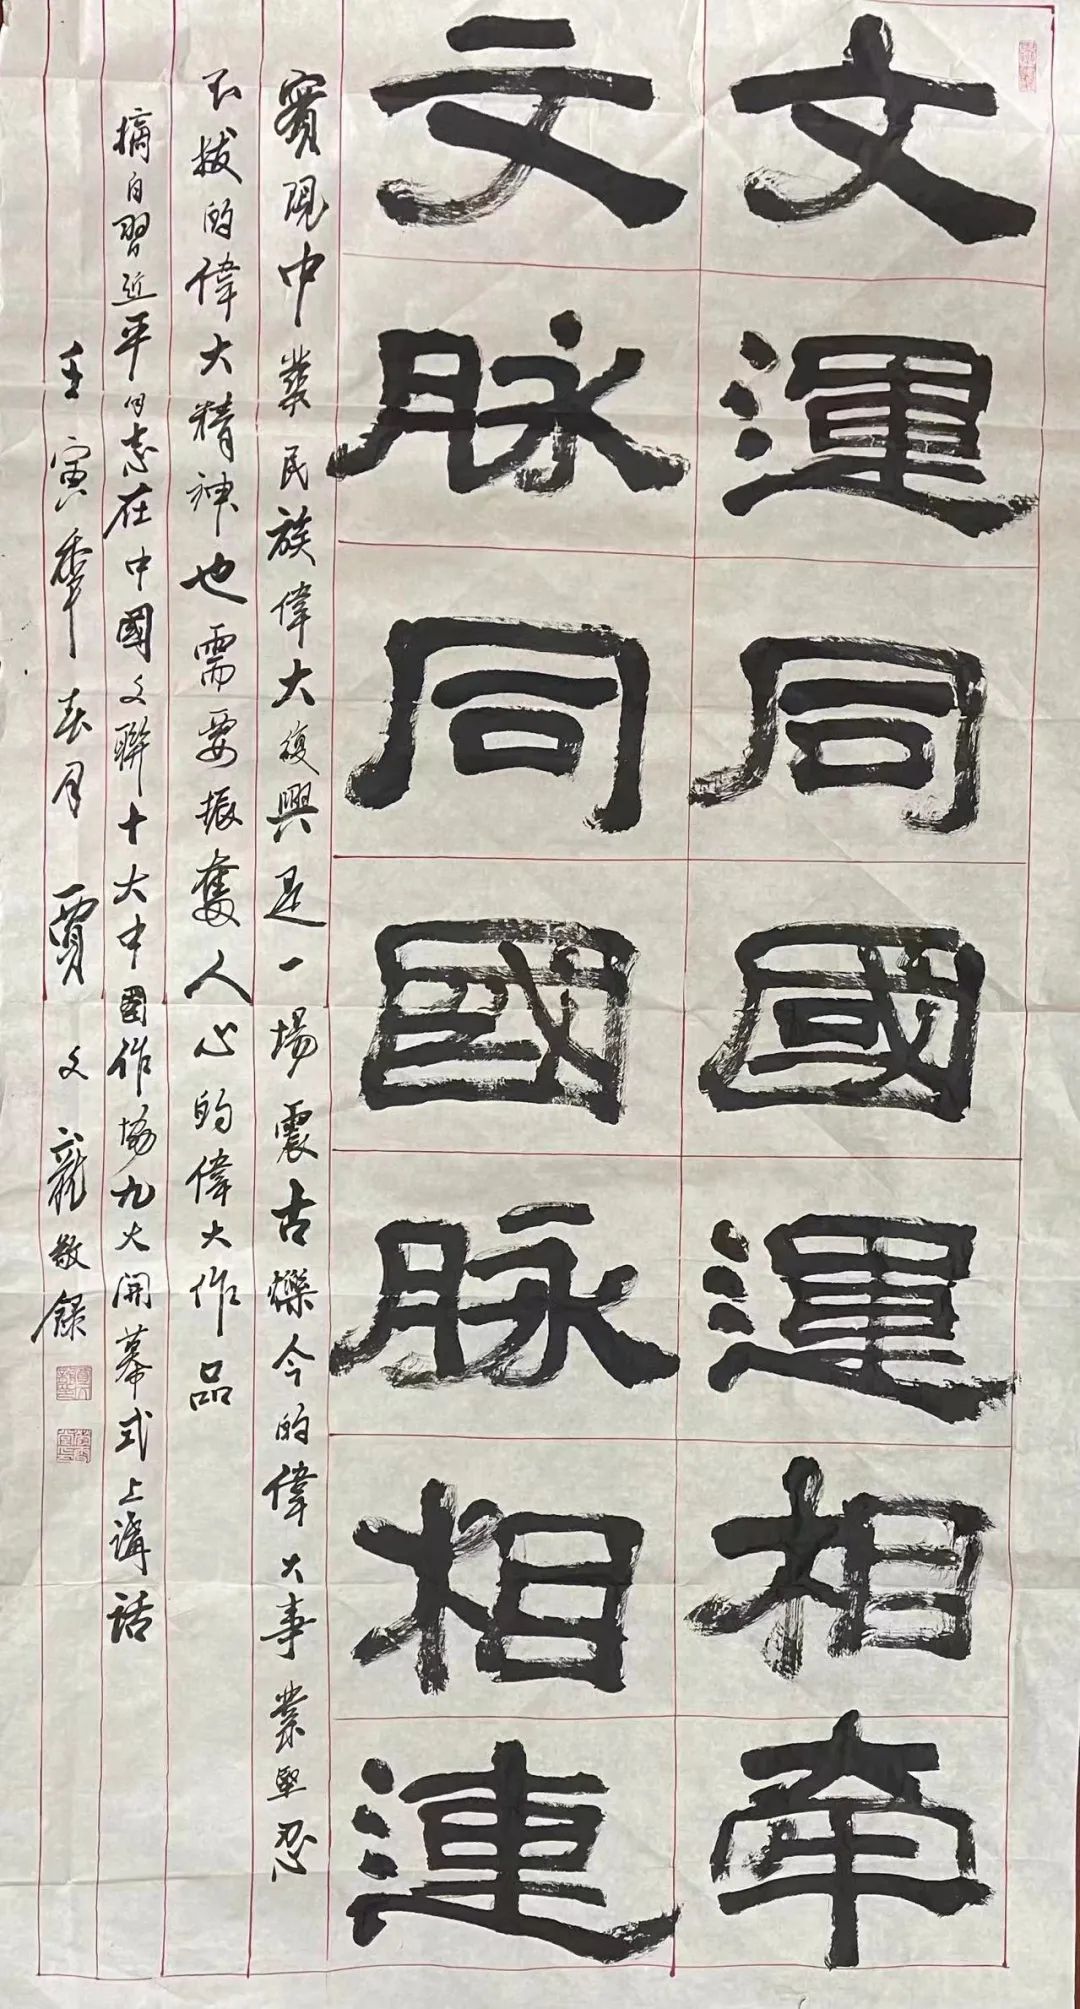 文運同國運相牽
文脉同國脉相連
實現中華民族偉大復興是一場震古爍今的偉大事業堅忍
不拔的偉大精神也需要振奮人心的偉大作品
摘自習近平同志在中國文聯十大中國作協九大開幕式上講話
壬寅年春月賈文龍敬錄